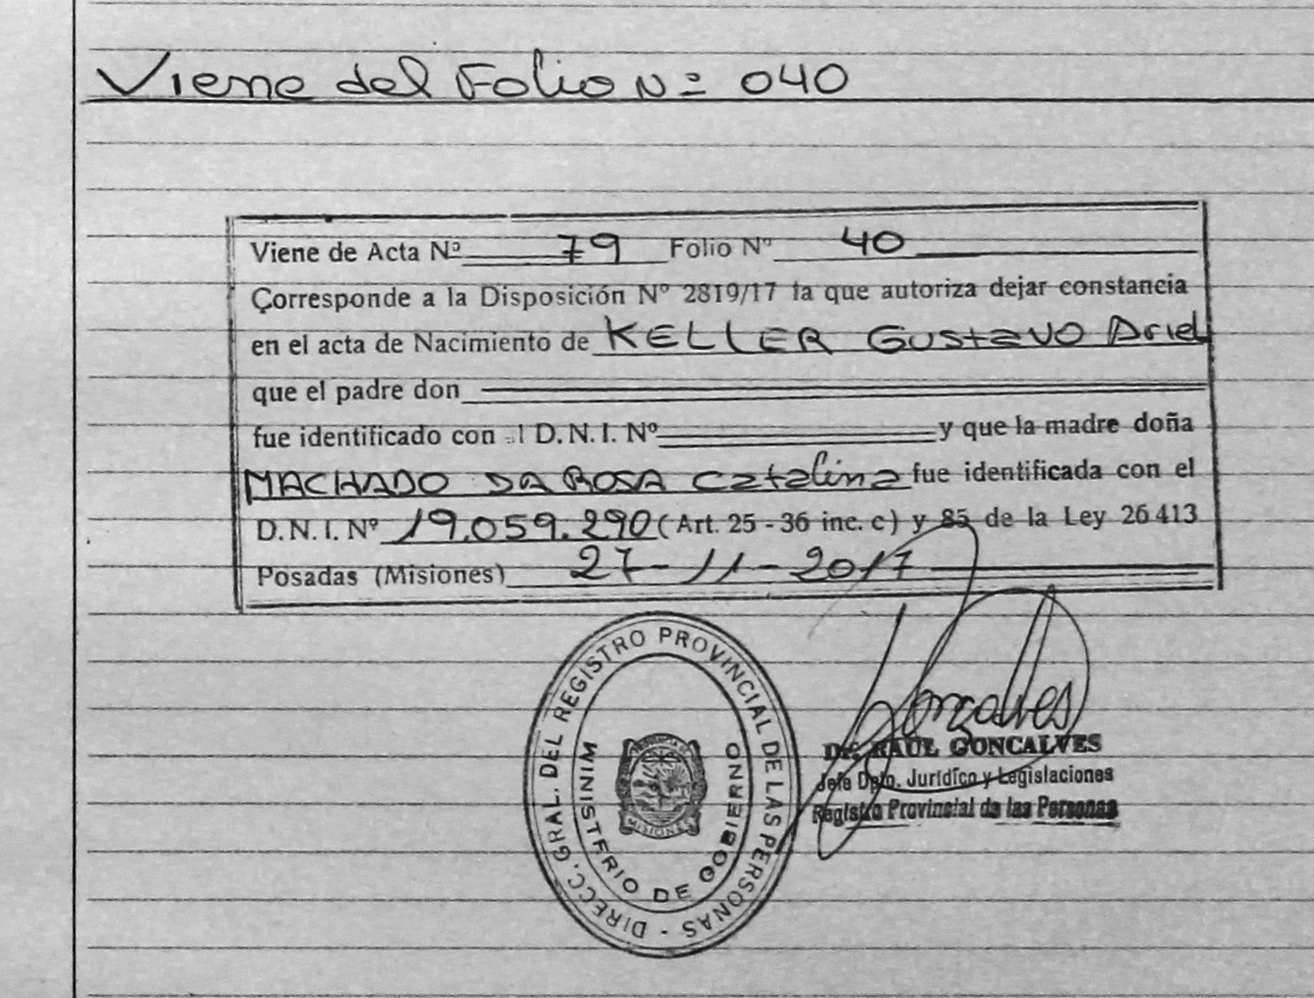 Viene del Folio Nº 040
Viene de Acta Nº 79 Folio Nº 40
Corresponde a la Disposición Nº 2819/17 la que autoriza dejar constancia
en el acta de Nacimiento de KELLER Gustavo Ariel
que el padre don
fue identificado con el D.N.I. Nº y que la madre doña
MACHADO DA ROSA Catalina fue identificada con el
D.N.I. Nº 19.059.290 (Art. 25 - 36 inc. c) y 85 de la Ley 26413
Posadas (Misiones) 27-11-2017
DIRECC. GRAL. DEL REGISTRO PROVINCIAL DE LAS PERSONAS -
MINISTERIO DE GOBIERNO
MISIONES
Gonçalves
Dr. RAUL GONCALVES
Jefe Dpto. Jurídico y Legislaciones
Registro Provincial de las Personas